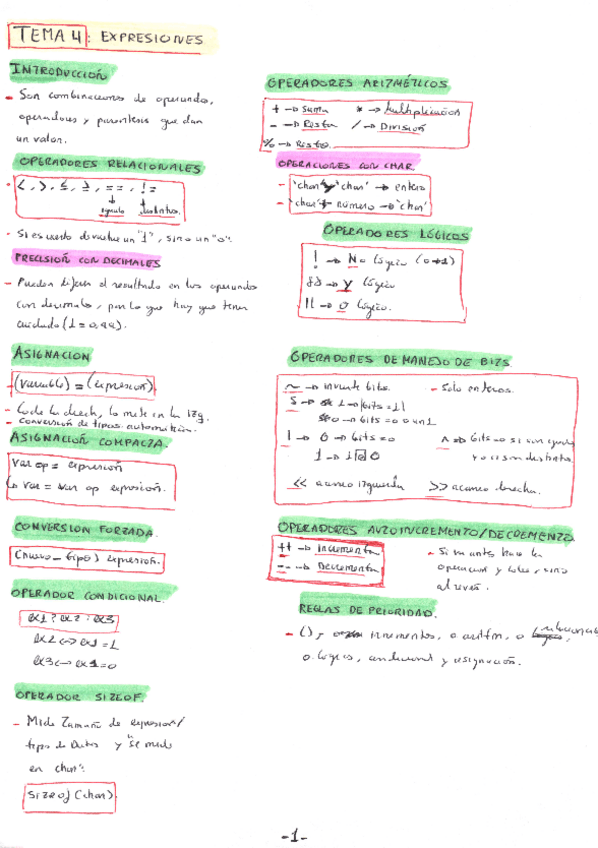 TEMA 4: EXPRESIONES
INTRODUCCIÓN
- Son combinaciones de operandos,
operadores y parentesis que dan
un valor.
OPERADORES RELACIONALES
<, >, ≤, ≥, ==, !=
igualo distintos
- Si es cierto devuelve un "1", si no un "0".
PRECISION CON DECIMALES
- Pueden el resultado en los operandos
con decimales, por lo que hay que tener
cuidado (1 = 0,99).
ASIGNACION
- (variable) = (expresion)
- Lo de la derech, lo mete en la izq.
- conversión de tipos automatica.
ASIGNACIÓN COMPACTA.
var op = expresión
↳ var = var op expresión.
CONVERSION FORZADA.
(nuevo - tipo) expresión.
OPERADOR CONDICIONAL.
ex1 ? ex2 : ex3
ex2 <-> ex1 = 1
ex3 <-> ex1 = 0
OPERADOR SIZEOF.
- Mide Tamaño de expresion/
tipo de Datos y "se mide
en char".
sizeof (char)
OPERADORES ARIZMÉTICOS
+ → suma * → Multiplicación
- → Resta / → División
% → Resto.
OPERACIONES CON CHAR.
- 'char' 'char' → entero
- 'char' + número → 'char'
OPERADORES LÓGICOS
! → No lógico (0→1)
&& → y lógico
|| → o lógico.
OPERADORES DE MANEJO DE BITS.
~ → invierte bits. - Solo enteros.
1 → bits = 11
0 → bits = 0 0 un 1
| → 0 → bits = 0 ^ → bits = 0 si son iguales
1 → 1 0 y 1 si son distintos
<< avance izquierda >> avance derecha.
OPERADORES AUTOINCREMENTO/DECREMENTO
++ → Incrementa - Si va antes hace la
-- → Decrementa operacion y , sino
al revés.
REGLAS DE PRIORIDAD.
- (), incrementos, o aritm, o relacionales
o. lógicos, condicional y asignación.
-1-